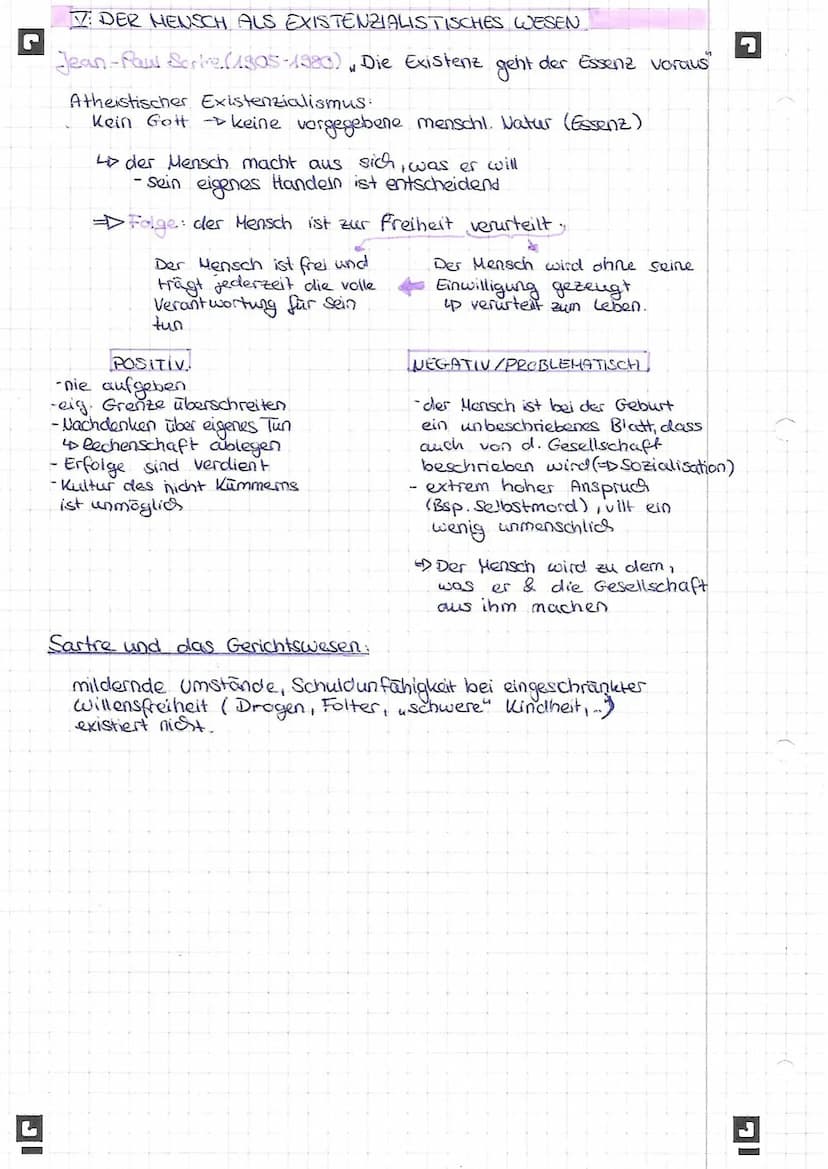 V: DER MENSCH ALS EXISTENZIALISTISCHES WESEN
Jean-Paul (1905-1980) „Die Existenz geht der Essenz voraus"
Atheistischer Existenzialismus:
Kein Gott → keine vorgegebene menschl. Natur (Essenz)
↳ der Mensch macht aus sich, was er will
- sein eigenes Handeln ist entscheidend
⇒ Folge: der Mensch ist zur Freiheit verurteilt.
Der Mensch ist frei und
trägt jederzeit die volle
Verantwortung für sein
tun
Der Mensch wird ohne seine
← Einwilligung gezeugt
↳ verurteilt zum Leben.
POSITIV:
- nie aufgeben
- eig. Grenze überschreiten
- Nachdenken über eigenes Tun
↳ Rechenschaft ablegen
- Erfolge sind verdient
- Kultur des nicht Kümmerns
ist unmöglich
NEGATIV/PROBLEMATISCH
- der Mensch ist bei der Geburt
ein unbeschriebenes Blatt, dass
auch von d. Gesellschaft
beschrieben wird (⇒ Sozialisation)
- extrem hoher Anspruch
(Bsp. Selbstmord), vllt ein
wenig unmenschlich
⇒ Der Mensch wird zu dem,
was er & die Gesellschaft
aus ihm machen
Sartre und das Gerichtswesen:
mildernde Umstände, Schuldunfähigkeit bei eingeschränkter
Willensfreiheit (Drogen, Folter, „schwere" Kindheit,..)
existiert nicht.